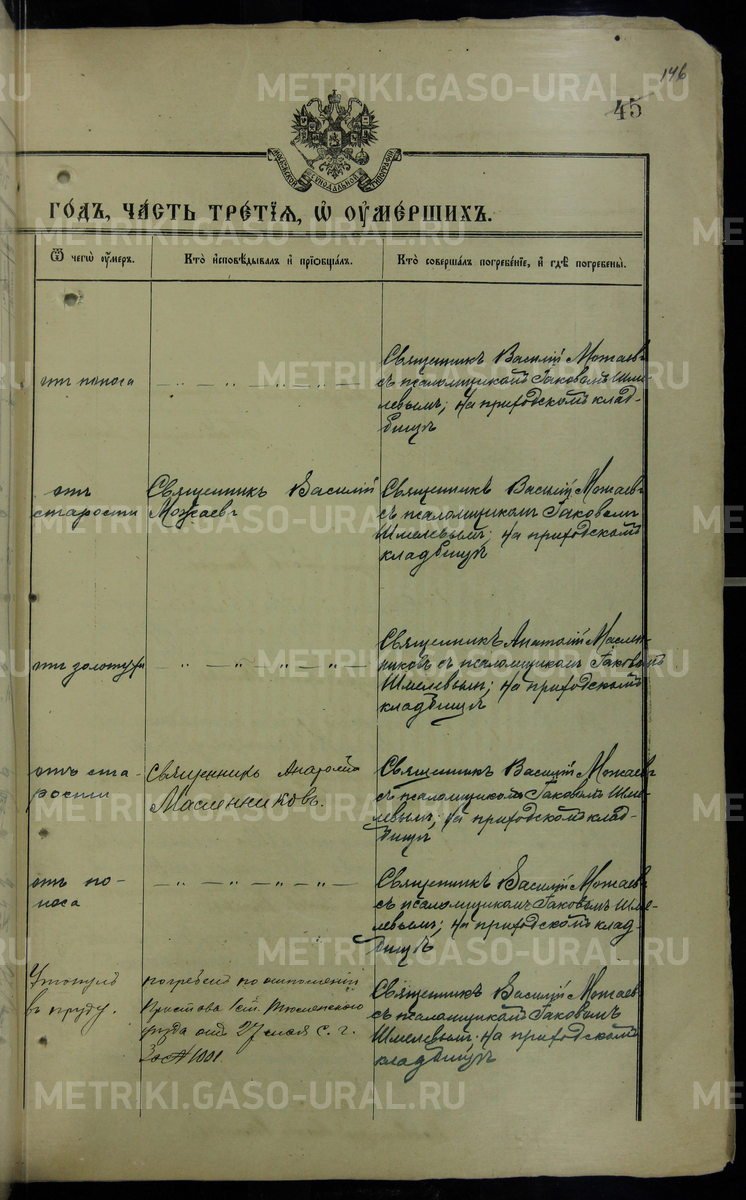 146
45
ГОДЪ, ЧАСТЬ ТРЕТІЯ, Ѽ ОУМЕРШИХЪ.
Ѿ чегѡ оумеръ.
Кто исповѣдывалъ и пріѡбщалъ.
Кто совершалъ погребеніе, и гдѣ погребены.
отъ поноса
— " — " — " — " —
Священникъ Василій Можаевъ
съ псаломщикомъ Іаковомъ Шме-
левымъ; на приходскомъ клад-
бищѣ
отъ
старости
Священникъ Василій
Можаевъ
Священникъ Василій Можаевъ
съ псаломщикомъ Іаковомъ
Шмелевымъ; на приходскомъ
кладбищѣ
отъ золотухи
— " — " — " — " —
Священникъ Анатолій Маслен-
никовъ съ псаломщикомъ Іаковомъ
Шмелевымъ; на приходскомъ
кладбищѣ
отъ ста-
рости
Священникъ Анатолій
Масленниковъ.
Священникъ Василій Можаевъ
съ псаломщикомъ Іаковомъ Шме-
левымъ; на приходскомъ клад-
бищѣ
отъ по-
носа
— " — " — " — " —
Священникъ Василій Можаевъ
съ псаломщикомъ Іаковомъ Шме-
левымъ; на приходскомъ клад-
бищѣ
Утонулъ
въ пруду.
погребенъ по отношенію
Пристава 1 ст. Тюменского
уѣзда отъ 27 мая с. г.
За № 1001
Священникъ Василій Можаевъ
съ псаломщикомъ Іаковомъ
Шмелевымъ; на приходскомъ
кладбищѣ
METRIKI.GASO-URAL.RU